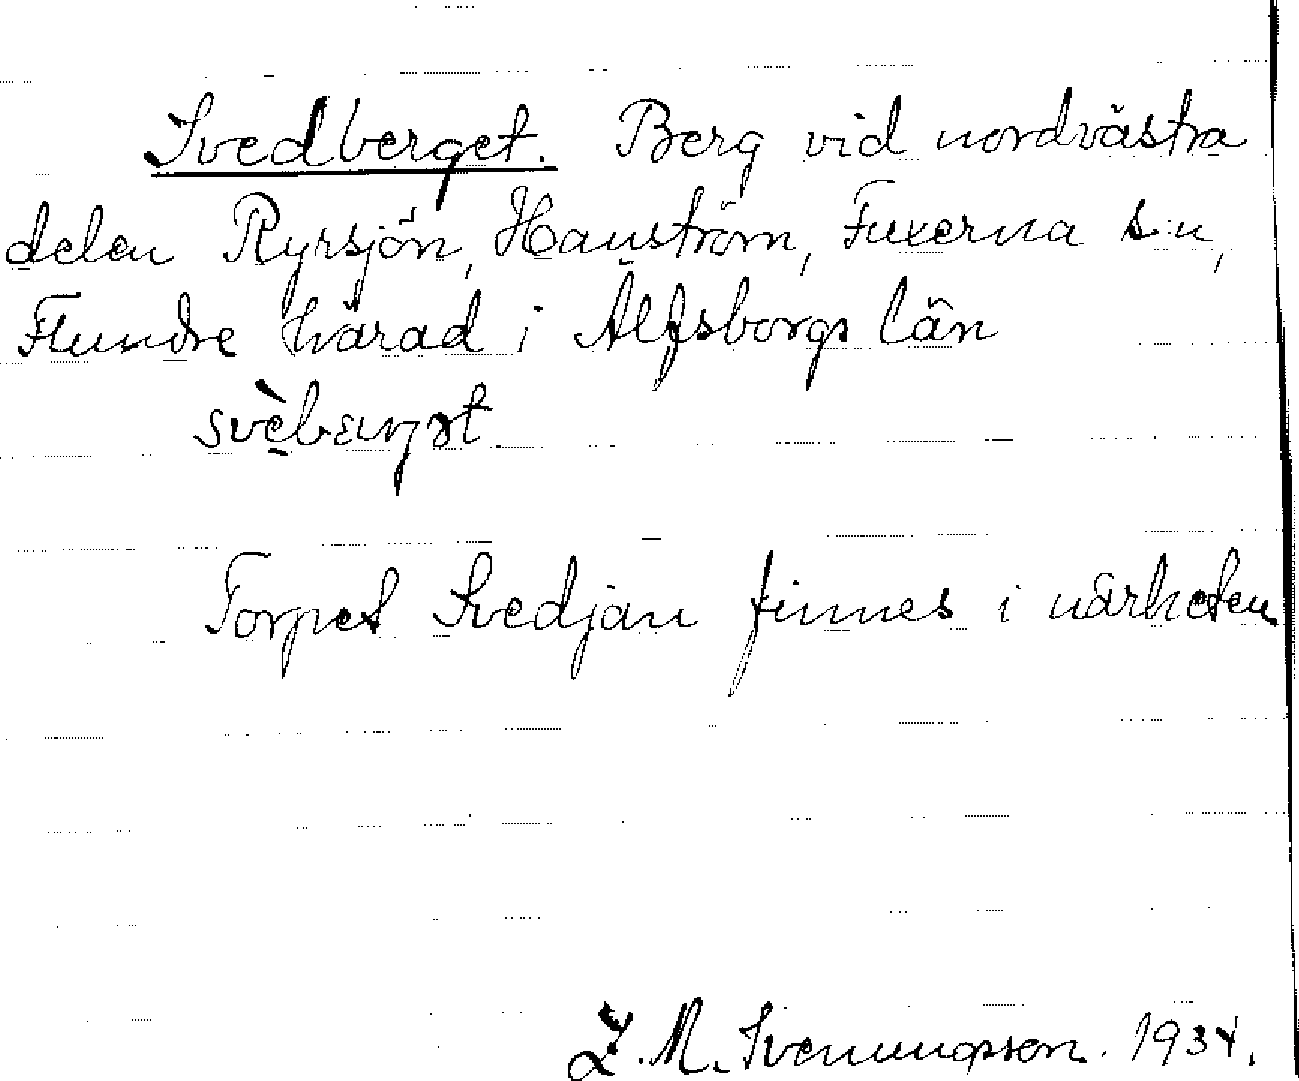 Svedberget. Berg vid nordvästra
delen Ryrsjön, Hanström, Fuxerna s:n,
Flundre härad i Älfsborgs län
Torpet Svedjan finnes i närheten
Z. M. Svenungsson. 1934.